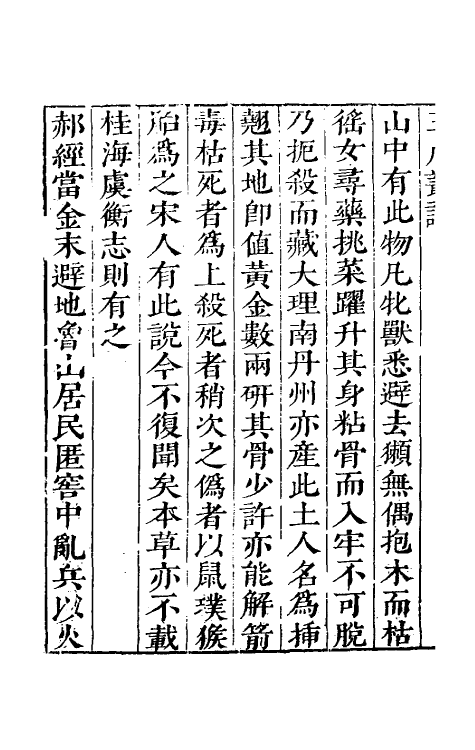 山中有此物凡牝獸悉避去獺無偶抱木而枯
徭女尋藥挑菜躍升其身粘骨而入牢不可脫
乃扼殺而藏大理南丹州亦産此土人名爲揷
翹其地卽值黃金數兩研其骨少許亦能解箭
毒枯死者爲上殺死者稍次之僞者以鼠璞猴
胎爲之宋人有此說今不復聞矣本草亦不載
桂海虞衡志則有之
郝經當金末避地魯山居民匿窖中亂兵以火